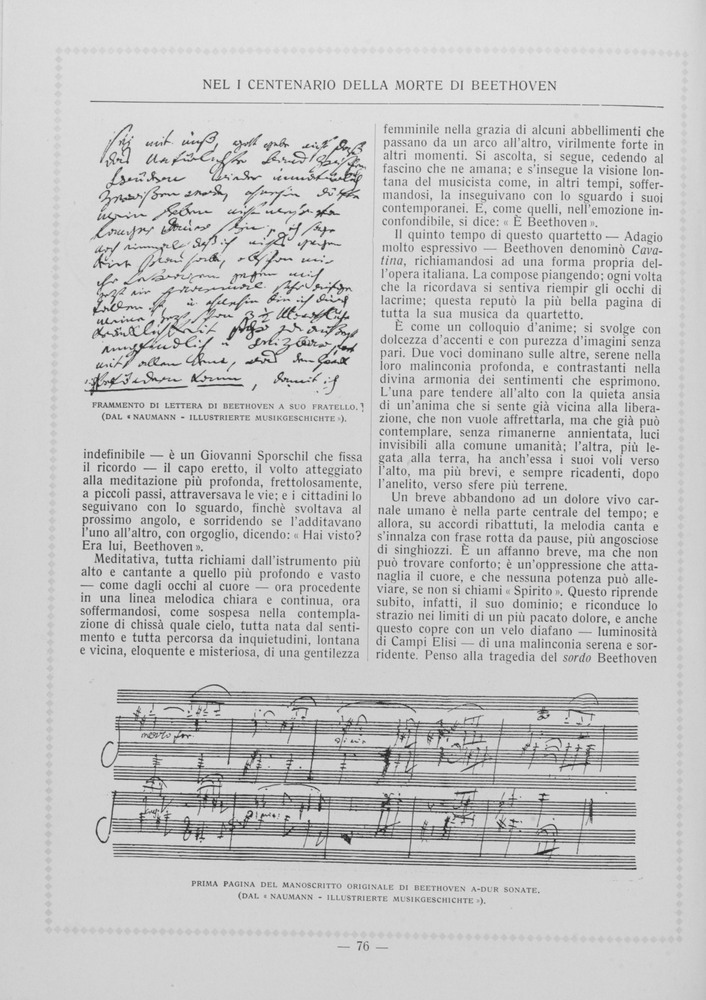 NEL I CENTENARIO DELLA MORTE DI BEETHOVEN
FRAMMENTO DI LETTERA DI BEETHOVEN A SUO FRATELLO.
(DAL « NAUMANN - ILLUSTRIERTE MUSIKGESCHICHTE »).
indefinibile — è un Giovanni Sporschil che fissa
il ricordo — il capo eretto, il volto atteggiato
alla meditazione più profonda, frettolosamente,
a piccoli passi, attraversava le vie; e i cittadini lo
seguivano con lo sguardo, finchè svoltava al
prossimo angolo, e sorridendo se l'additavano
l'uno all'altro, con orgoglio, dicendo: « Hai visto?
Era lui, Beethoven ».
Meditativa, tutta richiami dall'istrumento più
alto e cantante a quello più profondo e vasto
— come dagli occhi al cuore — ora procedente
in una linea melodica chiara e continua, ora
soffermandosi, come sospesa nella contempla-
zione di chissà quale cielo, tutta nata dal senti-
mento e tutta percorsa da inquietudini, lontana
e vicina, eloquente e misteriosa, di una gentilezza
femminile nella grazia di alcuni abbellimenti che
passano da un arco all'altro, virilmente forte in
altri momenti. Si ascolta, si segue, cedendo al
fascino che ne amana; e s'insegue la visione lon-
tana del musicista come, in altri tempi, soffer-
mandosi, la inseguivano con lo sguardo i suoi
contemporanei. E, come quelli, nell'emozione in-
confondibile, si dice: « È Beethoven ».
Il quinto tempo di questo quartetto — Adagio
molto espressivo — Beethoven denominò Cava-
tina, richiamandosi ad una forma propria del-
l'opera italiana. La compose piangendo; ogni volta
che la ricordava si sentiva riempir gli occhi di
lacrime; questa reputò la più bella pagina di
tutta la sua musica da quartetto.
È come un colloquio d'anime; si svolge con
dolcezza d'accenti e con purezza d'imagini senza
pari. Due voci dominano sulle altre, serene nella
loro malinconia profonda, e contrastanti nella
divina armonia dei sentimenti che esprimono.
L'una pare tendere all'alto con la quieta ansia
di un'anima che si sente già vicina alla libera-
zione, che non vuole affrettarla, ma che già può
contemplare, senza rimanerne annientata, luci
invisibili alla comune umanità; l'altra, più le-
gata alla terra, ha anch'essa i suoi voli verso
l'alto, ma più brevi, e sempre ricadenti, dopo
l'anelito, verso sfere più terrene.
Un breve abbandono ad un dolore vivo car-
nale umano è nella parte centrale del tempo; e
allora, su accordi ribattuti, la melodia canta e
s'innalza con frase rotta da pause, più angosciose
di singhiozzi. È un affanno breve, ma che non
può trovare conforto; è un'oppressione che atta-
naglia il cuore, e che nessuna potenza può alle-
viare, se non si chiami « Spirito ». Questo riprende
subito, infatti, il suo dominio; e riconduce lo
strazio nei limiti di un più pacato dolore, e anche
questo copre con un velo diafano — luminosità
di Campi Elisi — di una malinconia serena e sor-
ridente. Penso alla tragedia del sordo Beethoven
PRIMA PAGINA DEL MANOSCRITTO ORIGINALE DI BEETHOVEN A-DUR SONATE.
(DAL « NAUMANN - ILLUSTRIERTE MUSIKGESCHICHTE »).
— 76 —